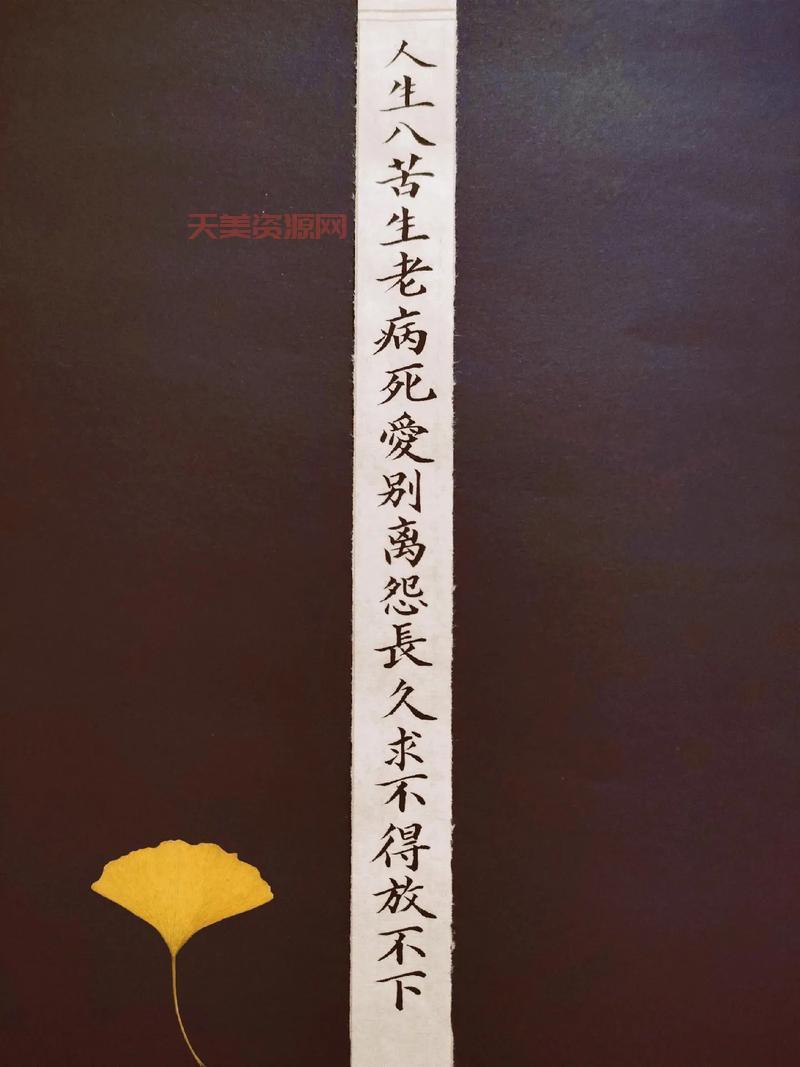 人生八苦生老病死愛别离怨長久求不得放不下
天美资源网